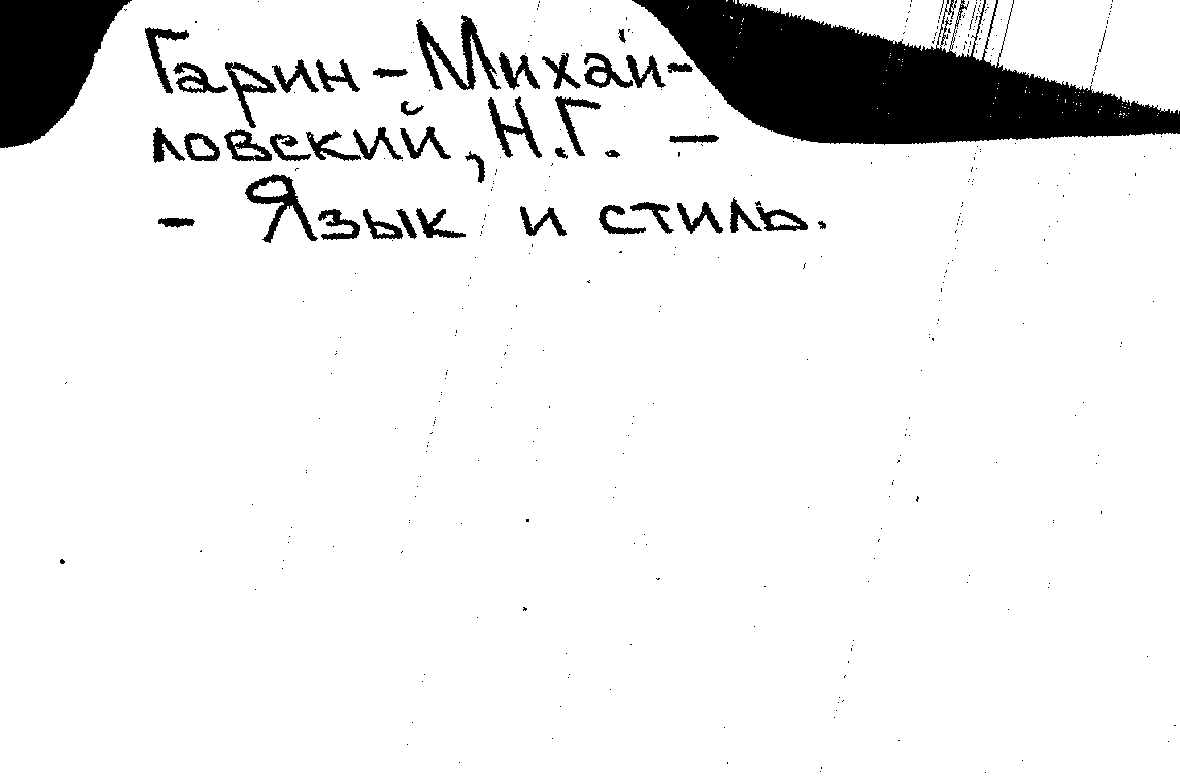 Гарин - Михай-
ловский, Н.Г. —
- Язык и стиль.